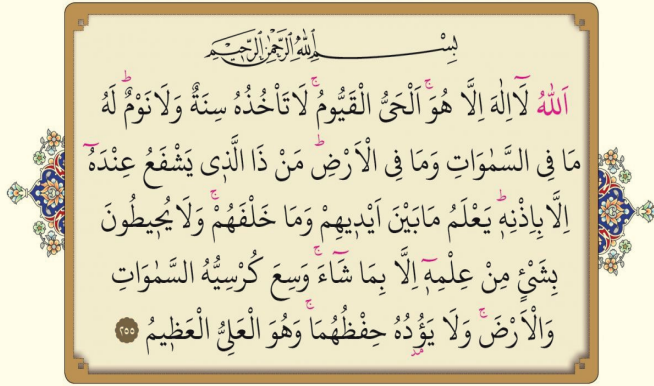 بِسْمِ اللّٰهِ الرَّحْمٰنِ الرَّحٖيمِ
اَللّٰهُ لَٓا اِلٰهَ اِلَّا هُوَۚ اَلْحَيُّ الْقَيُّومُۚ لَا تَأْخُذُهُ سِنَةٌ وَلَا نَوْمٌؕ لَهُ
مَا فِى السَّمٰوَاتِ وَمَا فِى الْاَرْضِؕ مَنْ ذَا الَّذٖى يَشْفَعُ عِنْدَهُٓ
اِلَّا بِاِذْنِهٖؕ يَعْلَمُ مَابَيْنَ اَيْدٖيهِمْ وَمَا خَلْفَهُمْۚ وَلَا يُحٖيطُونَ
بِشَیْءٍ مِنْ عِلْمِهٖٓ اِلَّا بِمَا شَٓاءَۚ وَسِعَ كُرْسِيُّهُ السَّمٰوَاتِ
وَالْاَرْضَۚ وَلَا يَؤُدُهُ حِفْظُهُمَاۚ وَهُوَ الْعَلِىُّ الْعَظٖيمُ ٢٥٥